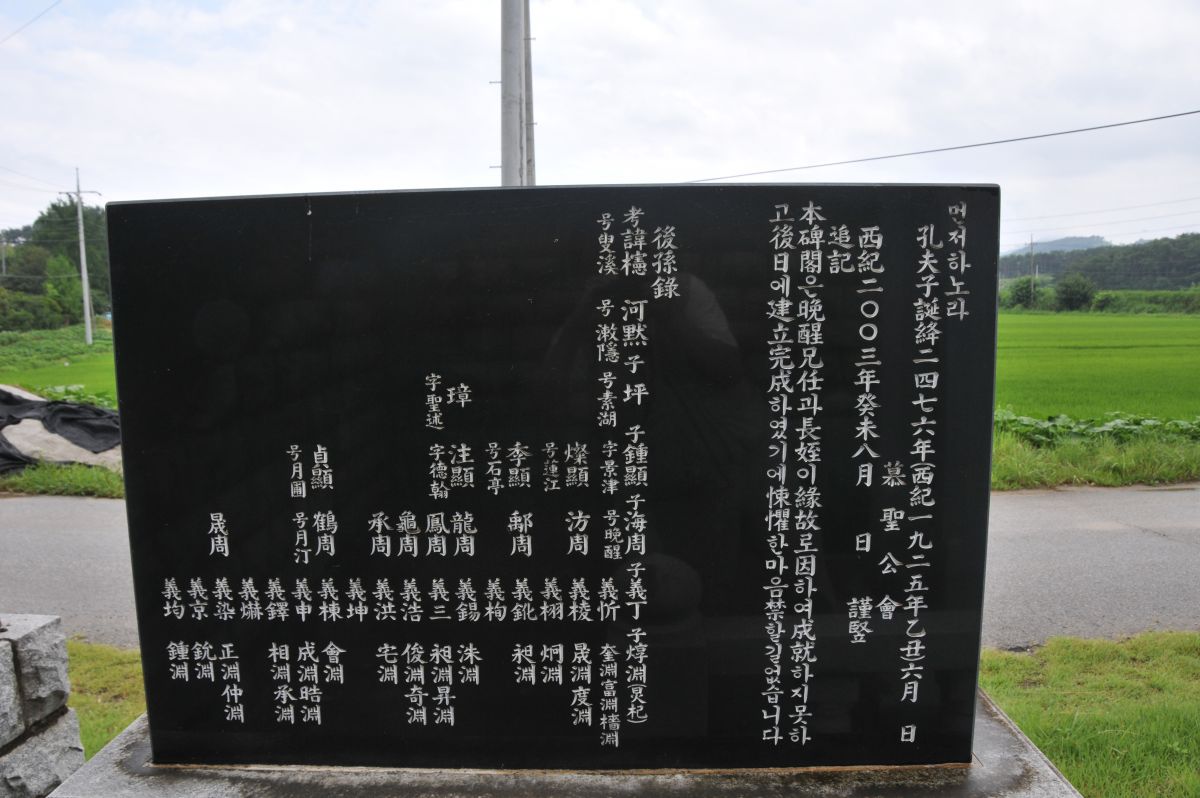 먼저하노라
孔夫子誕絳二四七六年(西紀一九二五年乙丑六月 日
慕聖公會 謹竪
西紀二○○三年癸未八月 日
追記
本碑閣은晩醒兄任과長姪이緣故로因하여成就하지못하
고後日에建立完成하였기에悚懼한마음禁할길없습니다
後孫錄
考諱櫶 河黙 子坪 子鍾顯 子海周 子義丁 子焞淵
号叟溪 号漱隱 号素湖 字景津 号晩醒 義忻 奎淵富淵檣淵
燦顯 汸周 義稜 晟淵度淵
号蓮江 義栩 炯淵
季顯 郁周 義鈋 昶淵
号石亭 義枸
璋 注顯 龍周 義錫 洙淵
字聖述 字德翰 鳳周 義三 昶淵昇淵
龜周 義浩 俊淵奇淵
承周 義洪 宅淵
義坤
貞顯 鶴周 義棟 會淵
号月圃 号月汀 義申 成淵晧淵
義鐸 相淵承淵
義爀
晟周 義染 正淵仲淵
義京 銃淵
義均 鍾淵